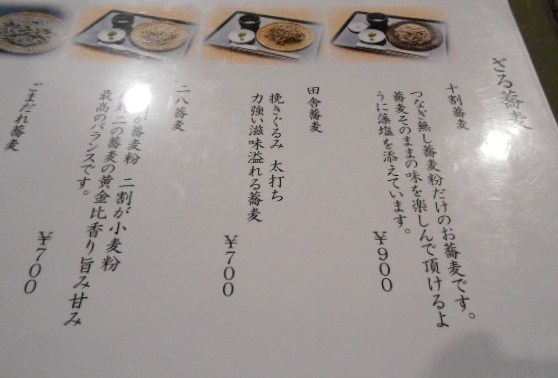 ざる蕎麦
十割蕎麦
つなぎ無し蕎麦粉だけのお蕎麦です。
蕎麦そのままの味を楽しんで頂けるよ
うに藻塩を添えています。
￥900
田舎蕎麦
挽きぐるみ 太打ち
力強い滋味溢れる蕎麦
￥700
二八蕎麦
割が蕎麦粉 二割が小麦粉
対二の蕎麦の黄金比香り旨み甘み
最高のバランスです。
￥700
ごまだれ蕎麦